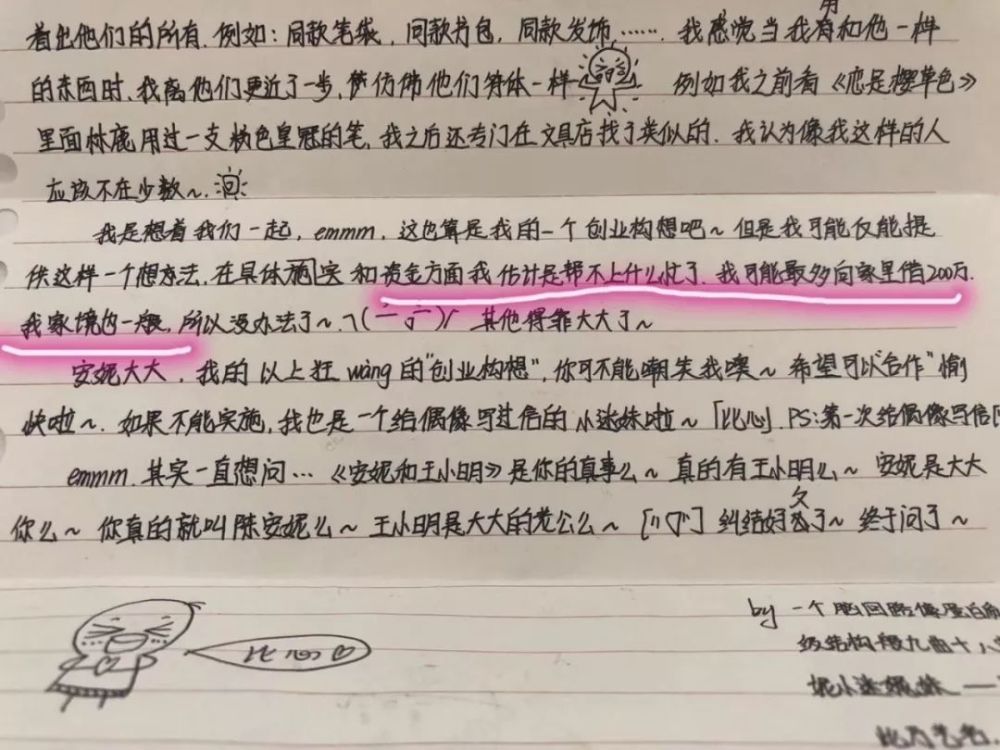 着出他们的所有.例如:同款笔袋,同款书包,同款发饰……我感觉当我有用和他一样
的东西时.我离他们更近了一步,仿佛他们身体一样 例如我之前看《恋是樱草色》
里面林鹿用过一支杨色皇冠的笔,我之后还专门在文具店找了类似的.我认为像我这样的人
应该不在少数~.
我是想着我们一起,emmm,这也算是我的一个创业构想吧~但是我可能仅能提
供这样一个想方法,在具体施实和资金方面我估计是帮不上什么忙了.我可能最多向家里借200万.
我家境也一般,所以没办法了~.其他得靠大大了~
安妮大大,我的以上狂wàng的"创业构想",你可不能嘲笑我噗~希望可以"合作"愉
快啦~.如果不能实施,我也是一个给偶像写过信的小迷妹啦~「比心」.PS:第一次给偶像写信
emmm.其实一直想问…《安妮和王小明》是你的真事么~真的有王小明么~安妮是大大
你么~你真的就叫陈安妮么~王小明是大大的老公么~纠结好久了~终于问了~
比心♡
by 一个脑回路像蛋白
级结构般九曲十八
妮小迷妹